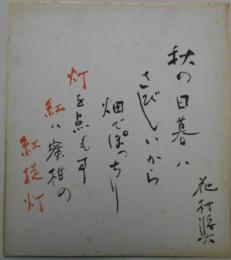 秋の日暮ハ
さびしいから
畑でぽっちり
灯を点もす
紅い蜜柑の
紅提灯
花村奨